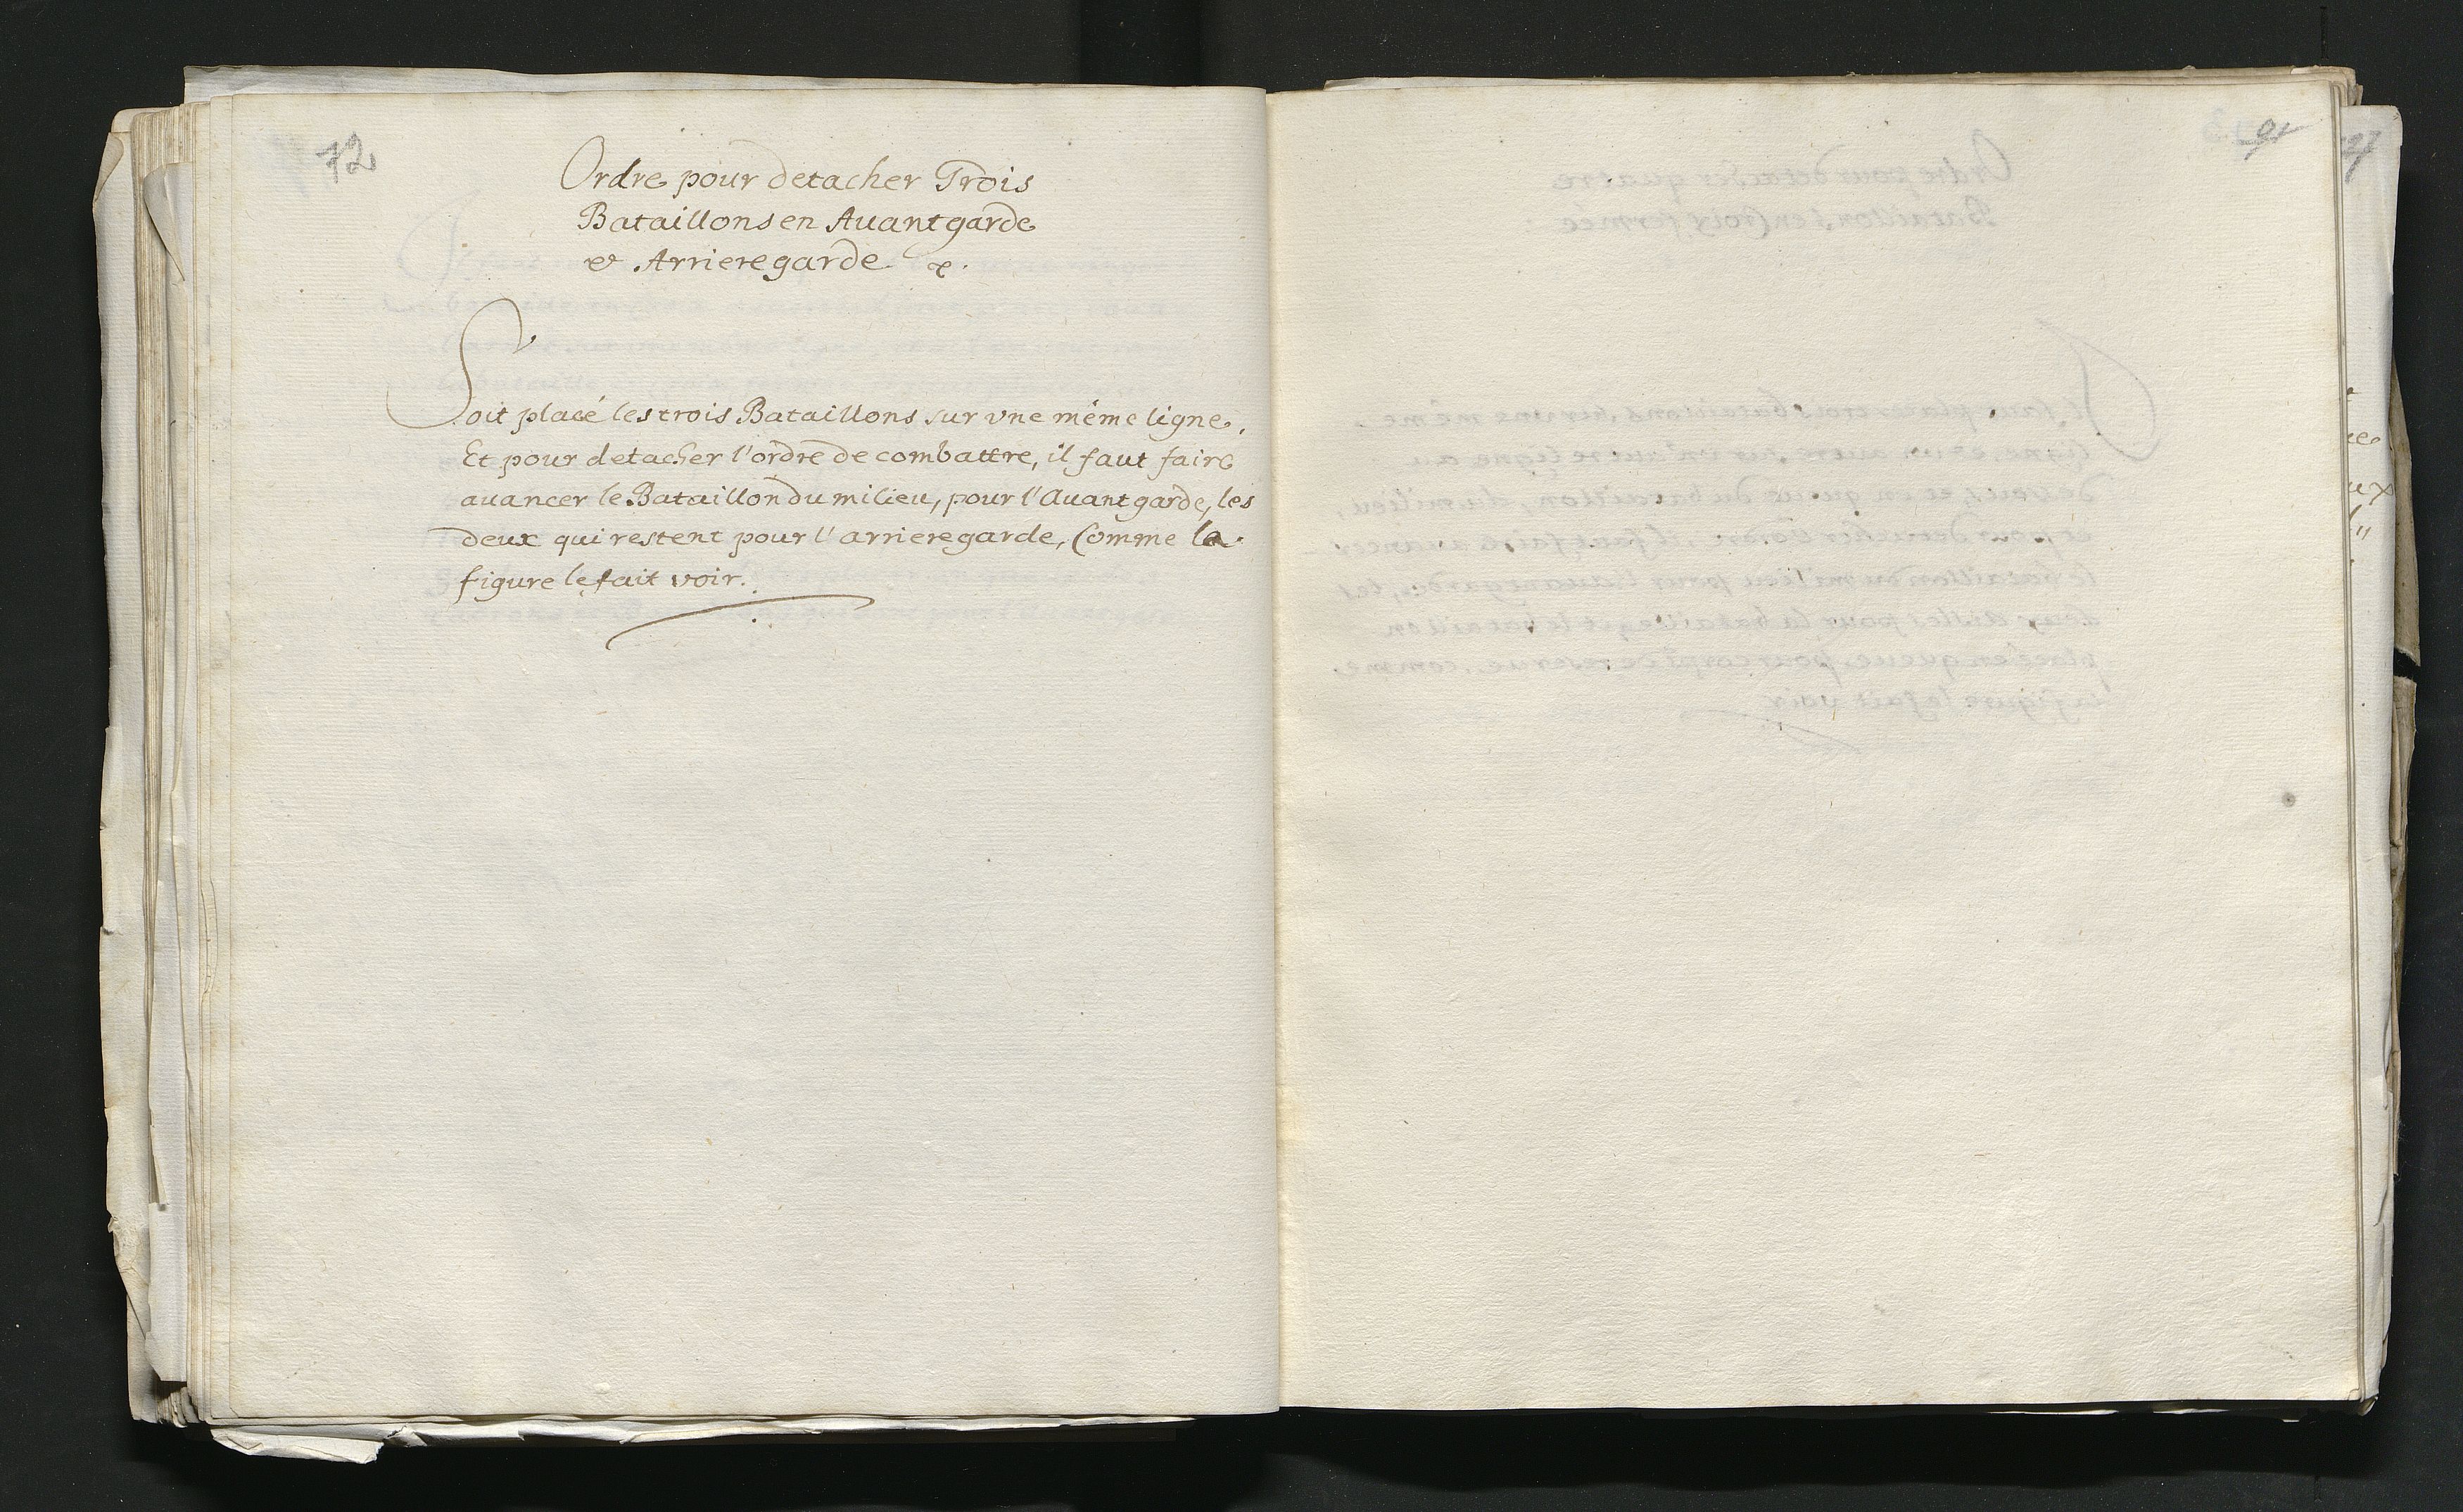 72
Ordre pour detacher Trois
Bataillons en Auantgarde
et Arrieregarde
Soit placé les trois Bataillons sur vne méme ligne,
Et pour detacher l'ordre de combattre, il faut faire
auancer le Bataillon du milieu, pour l'Auantgarde, les
deux qui restent pour l'arrieregarde, Comme la
figure le fait voir.